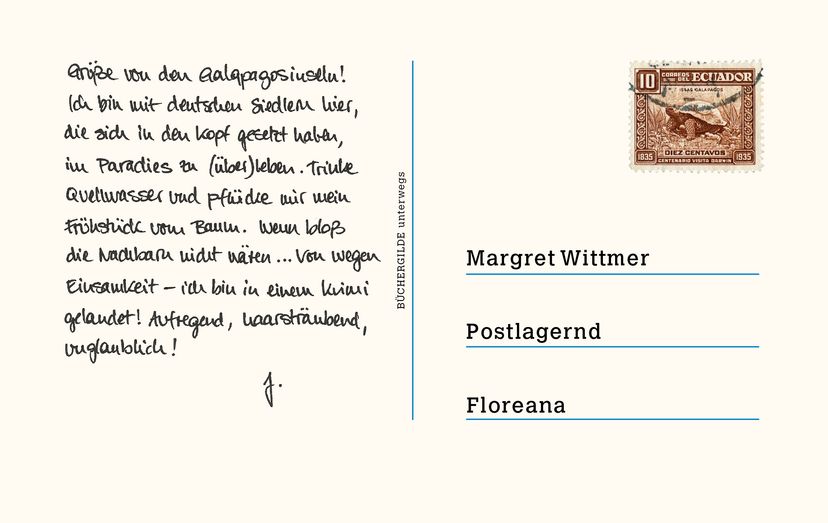 Grüße von den Galapagosinseln!
Ich bin mit deutschen Siedlern hier,
die sich in den Kopf gesetzt haben,
im Paradies zu (über)leben. Trinke
Quellwasser und pflücke mir mein
Frühstück vom Baum. Wenn bloß
die Nachbarn nicht wären... Von wegen
Einsamkeit – ich bin in einem Krimi
gelandet! Aufregend, haarsträubend,
unglaublich!
J.
BÜCHERGILDE unterwegs
10
CORREOS DEL ECUADOR
ISLAS GALAPAGOS
DIEZ CENTAVOS
1835 CENTENARIO VISITA DARWIN 1935
Margret Wittmer
Postlagernd
Floreana